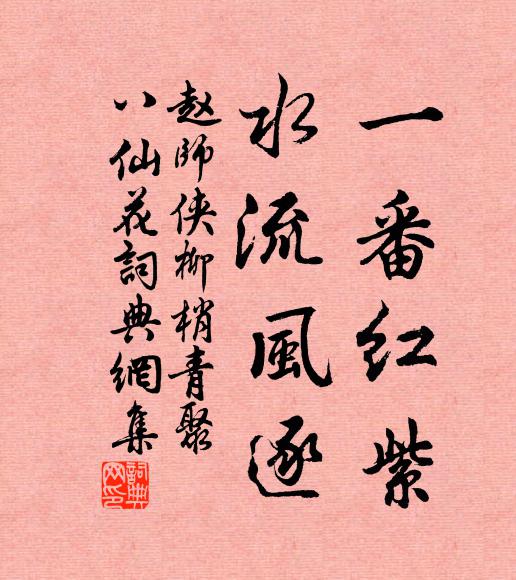 一番红紫
水流風逐
赵師侠柳梢青聚
八仙花詞典網集
詞典网印